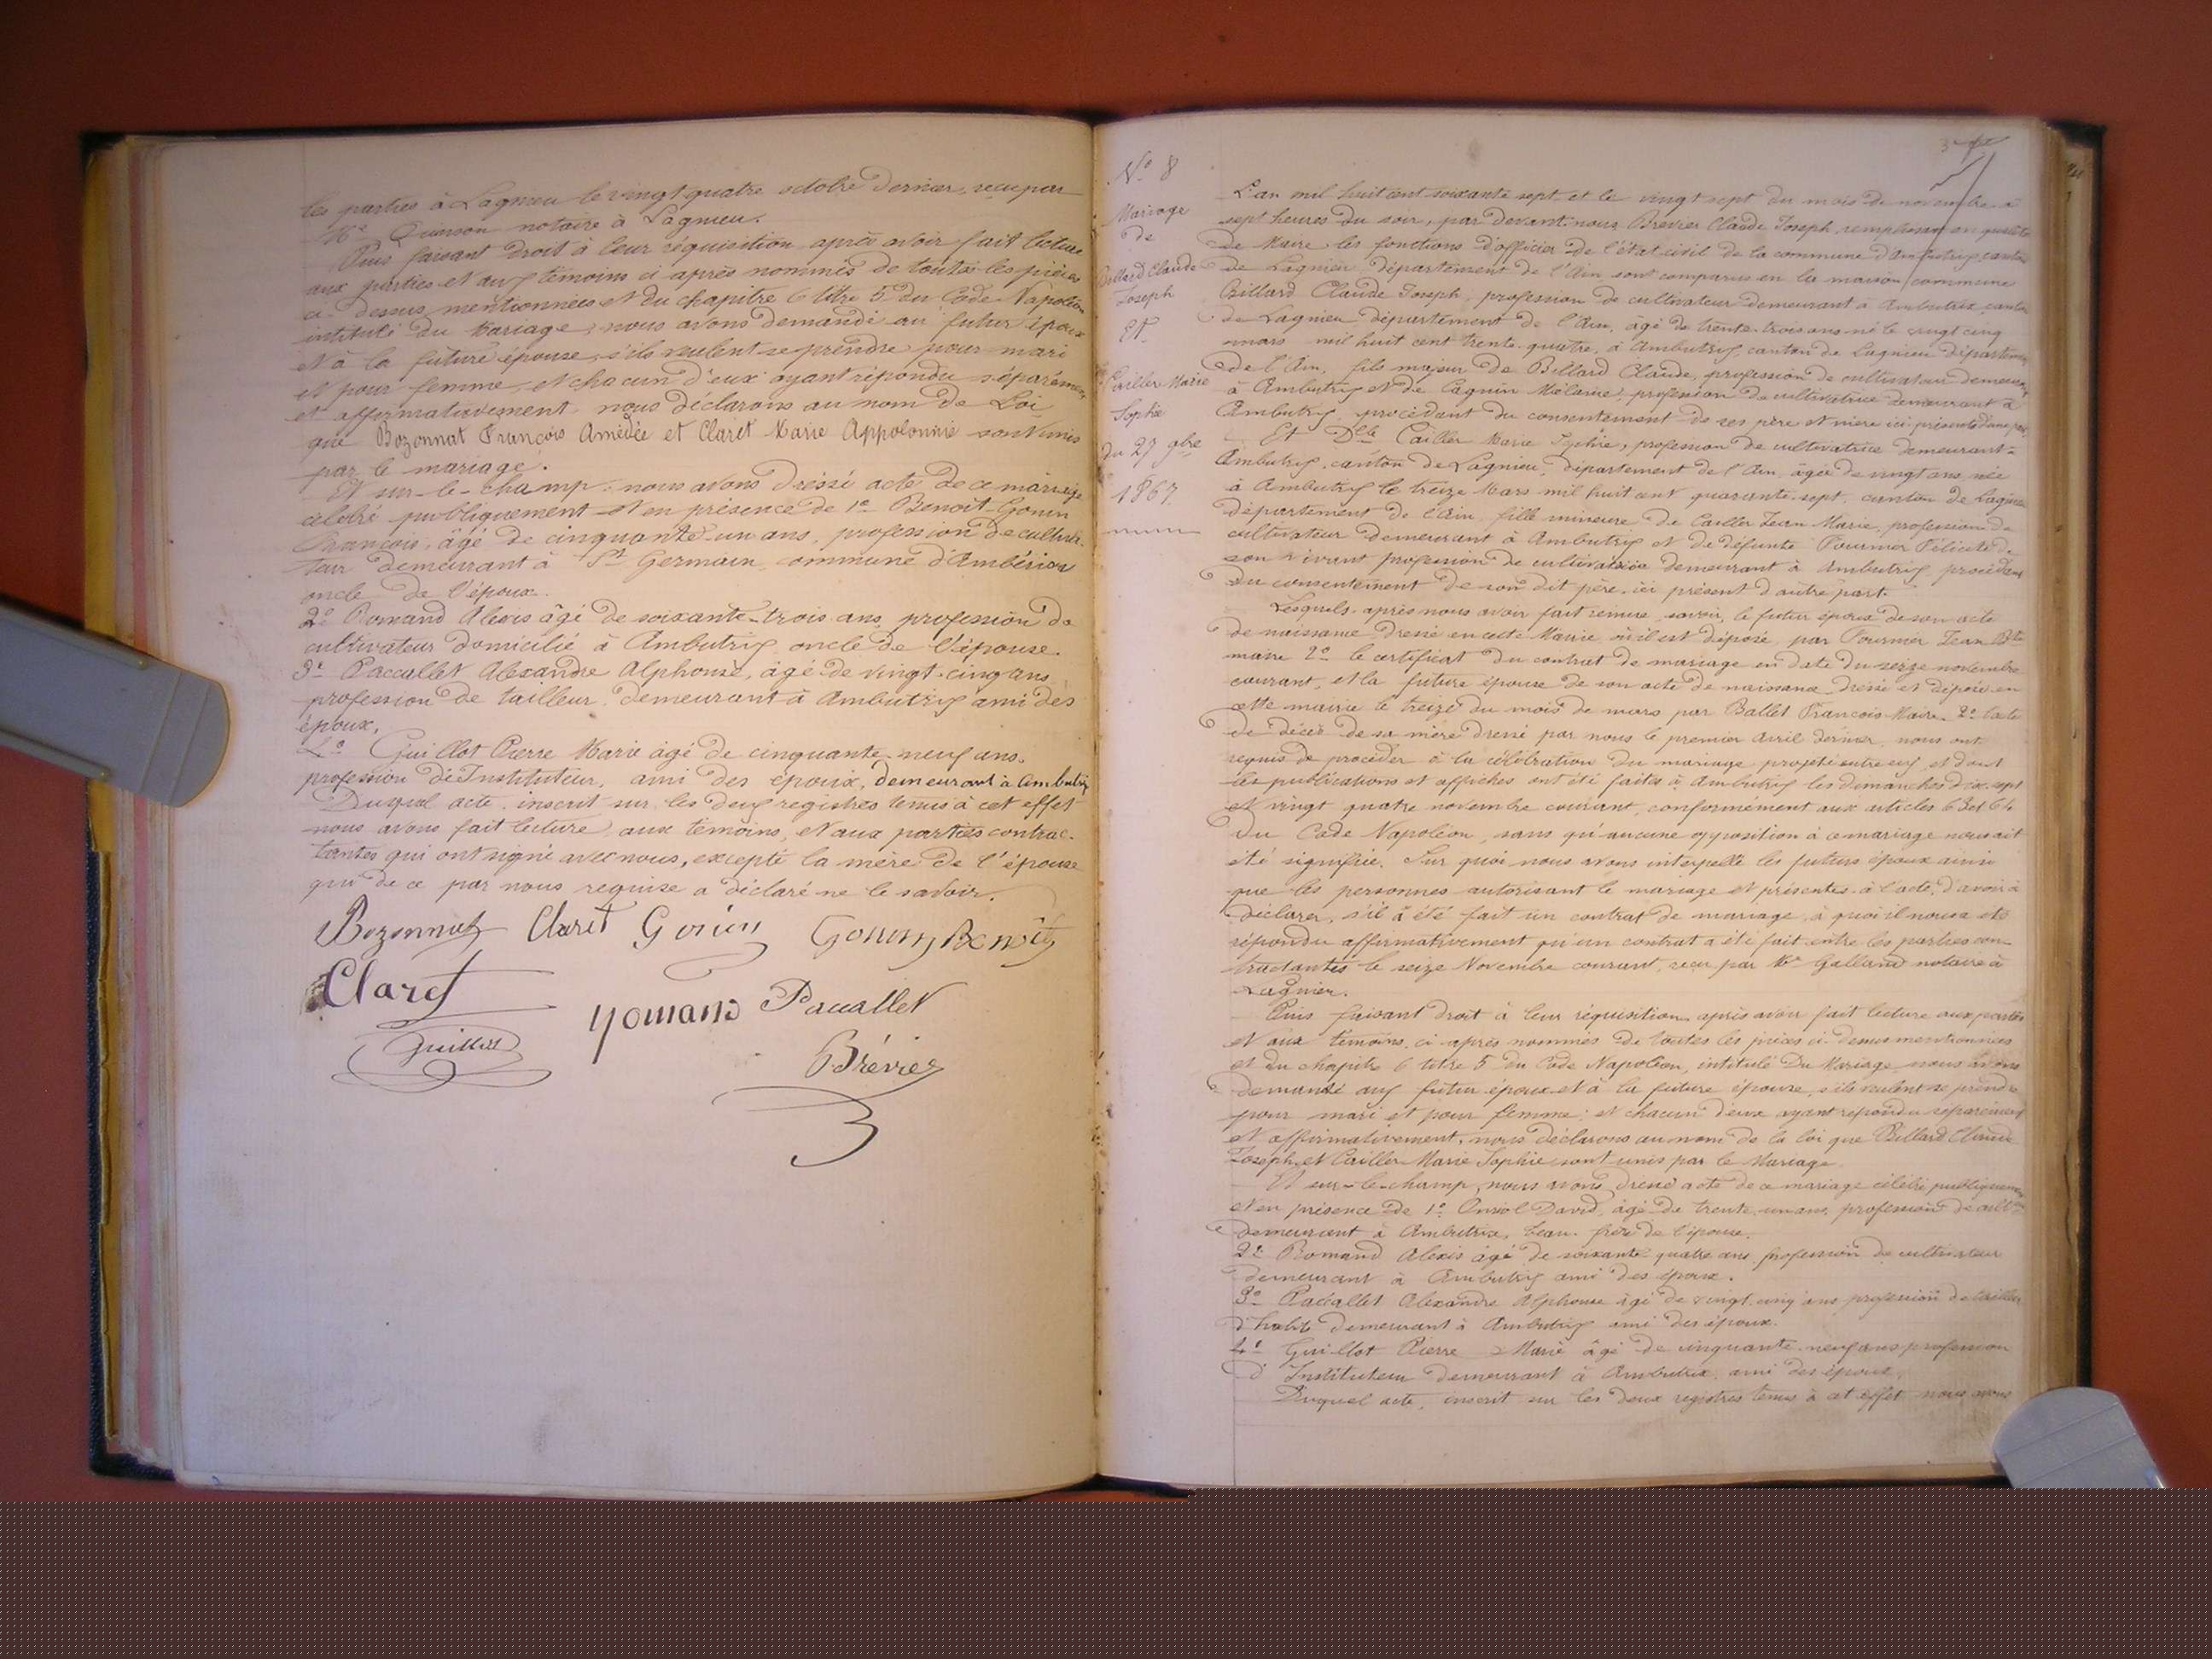 les parties à Lagnieu le vingt quatre octobre dernier, reçu par
Me Querson notaire à Lagnieu.
Puis faisant droit à leur réquisition, après avoir fait lecture
aux parties et aux témoins ci après nommés de toutes les pièces
ci-dessus mentionnées et du chapitre 6 titre 5 du Code Napoléon
intitulé du Mariage, nous avons demandé au futur époux
et à la future épouse, s'ils veulent se prendre pour mari
et pour femme, et chacun d'eux ayant répondu séparément
et affirmativement nous déclarons au nom de Loi
que Bozonnat François Amédée et Claret Marie Appolonnie sont unis
par le mariage.
Et sur-le-champ, nous avons dressé acte de ce mariage
célébré publiquement et en présence de 1o Benoît-Gonin
François, âgé de cinquante-un ans, profession de cultiva-
teur demeurant à St Germain commune d'Ambérieu
oncle de l'époux.
2o Romand Alexis âgé de soixante-trois ans, profession de
cultivateur domicilié à Ambutrix oncle de l'épouse.
3o Paccallet Alexandre Alphonse, âgé de vingt-cinq ans
profession de tailleur demeurant à Ambutrix ami des
époux.
4o Guillot Pierre Marie âgé de cinquante-neuf ans.
profession de Instituteur, ami des époux, demeurant à Ambutrix
Duquel acte inscrit sur les deux registres tenus à cet effet
nous avons fait lecture aux témoins, et aux parties contrac-
tantes qui ont signé avec nous, excepté la mère de l'épouse
qui de ce par nous requise a déclaré ne le savoir.
Bozonnat Claret Gonin Gonin Benoît
Claret
romand Paccallet
Guillot
Brévier
No 8
Mariage
de
Billard Claude
Joseph
Et
Cailler Marie
Sophie
du 27 9bre
1867
L'an mil huit cent soixante sept et le vingt sept du mois de novembre à
sept heures du soir, par devant nous Brévier Claude Joseph remplissant en qualité
de Maire les fonctions d'officier de l'état civil de la commune d'Ambutrix canton
de Lagnieu département de l'Ain sont comparus en la maison commune
Billard Claude Joseph, profession de cultivateur demeurant à Ambutrix canton
de Lagnieu département de l'Ain, âgé de trente-trois ans né le vingt cinq
mars mil huit cent trente-quatre, à Ambutrix canton de Lagnieu département
de l'Ain, fils majeur de Billard Claude, profession de cultivateur demeurant
à Ambutrix et de Cagnin Mélanie, profession de cultivatrice demeurant à
Ambutrix, procédant du consentement de ses père et mère ici présents d'une part
Et Dlle Cailler Marie Sophie, profession de cultivatrice demeurant à
Ambutrix, canton de Lagnieu, département de l'Ain, âgée de vingt ans née
à Ambutrix le treize Mars mil huit cent quarante-sept, canton de Lagnieu
département de l'Ain fille mineure de Cailler Jean Marie, profession de
cultivateur demeurant à Ambutrix et de défunte Fournier Félicité de
son vivant profession de cultivatrice demeurant à Ambutrix, procédant
du consentement de son dit père, ici présent d'autre part.
Lesquels après nous avoir fait remise, savoir, le futur époux de son acte
de naissance dressé en cette Mairie où il est déposé par Fournier Jean Bte
maire 2o le certificat du contrat de mariage en date du seize novembre
courant, et la future épouse de son acte de naissance dressé et déposé en
cette mairie le treize du mois de mars par Ballet François Maire. 2o l'acte
de décès de sa mère dressé par nous le premier Avril dernier, nous ont
requis de procéder à la célébration du mariage projeté entre eux, et dont
les publications et affiches ont été faites à Ambutrix les dimanches dix-sept
et vingt quatre novembre courant, conformément aux articles 63 et 64
du Code Napoléon, sans qu'aucune opposition à ce mariage nous ait
été signifiée. Sur quoi nous avons interpellé les futurs époux ainsi
que les personnes autorisant le mariage et présentes à l'acte, d'avoir à
déclarer, s'il a été fait un contrat de mariage, à quoi il nous a été
répondu affirmativement qu'un contrat a été fait entre les parties con-
tractantes le seize Novembre courant, reçu par Me Galland notaire à
Lagnieu.
Puis faisant droit à leur réquisition, après avoir fait lecture aux parties
et aux témoins, ci-après nommés de toutes les pièces ci-dessus mentionnées
et du chapitre 6 titre 5 du Code Napoléon, intitulé Du Mariage nous avons
demandé aux futur époux et à la future épouse, s'ils veulent se prendre
pour mari et pour femme; et chacun d'eux ayant répondu séparément
et affirmativement, nous déclarons au nom de la loi que Billard Claude
Joseph et Cailler Marie Sophie sont unis par le Mariage.
Et sur-le-champ, nous avons dressé acte de ce mariage célébré publiquement
et en présence de 1o David, âgé de trente-un ans, profession de cultr
demeurant à Ambutrix, beau-frère de l'épouse.
2o Romand Alexis âgé de soixante-quatre ans profession de cultivateur
demeurant à Ambutrix ami des époux.
3o Paccallet Alexandre Alphonse âgé de vingt-cinq ans profession de tailleur
d'habit demeurant à Ambutrix ami des époux.
4o Guillot Pierre Marie âgé de cinquante-neuf ans profession
d'Instituteur demeurant à Ambutrix ami des époux.
Duquel acte, inscrit sur les deux registres tenus à cet effet nous avons